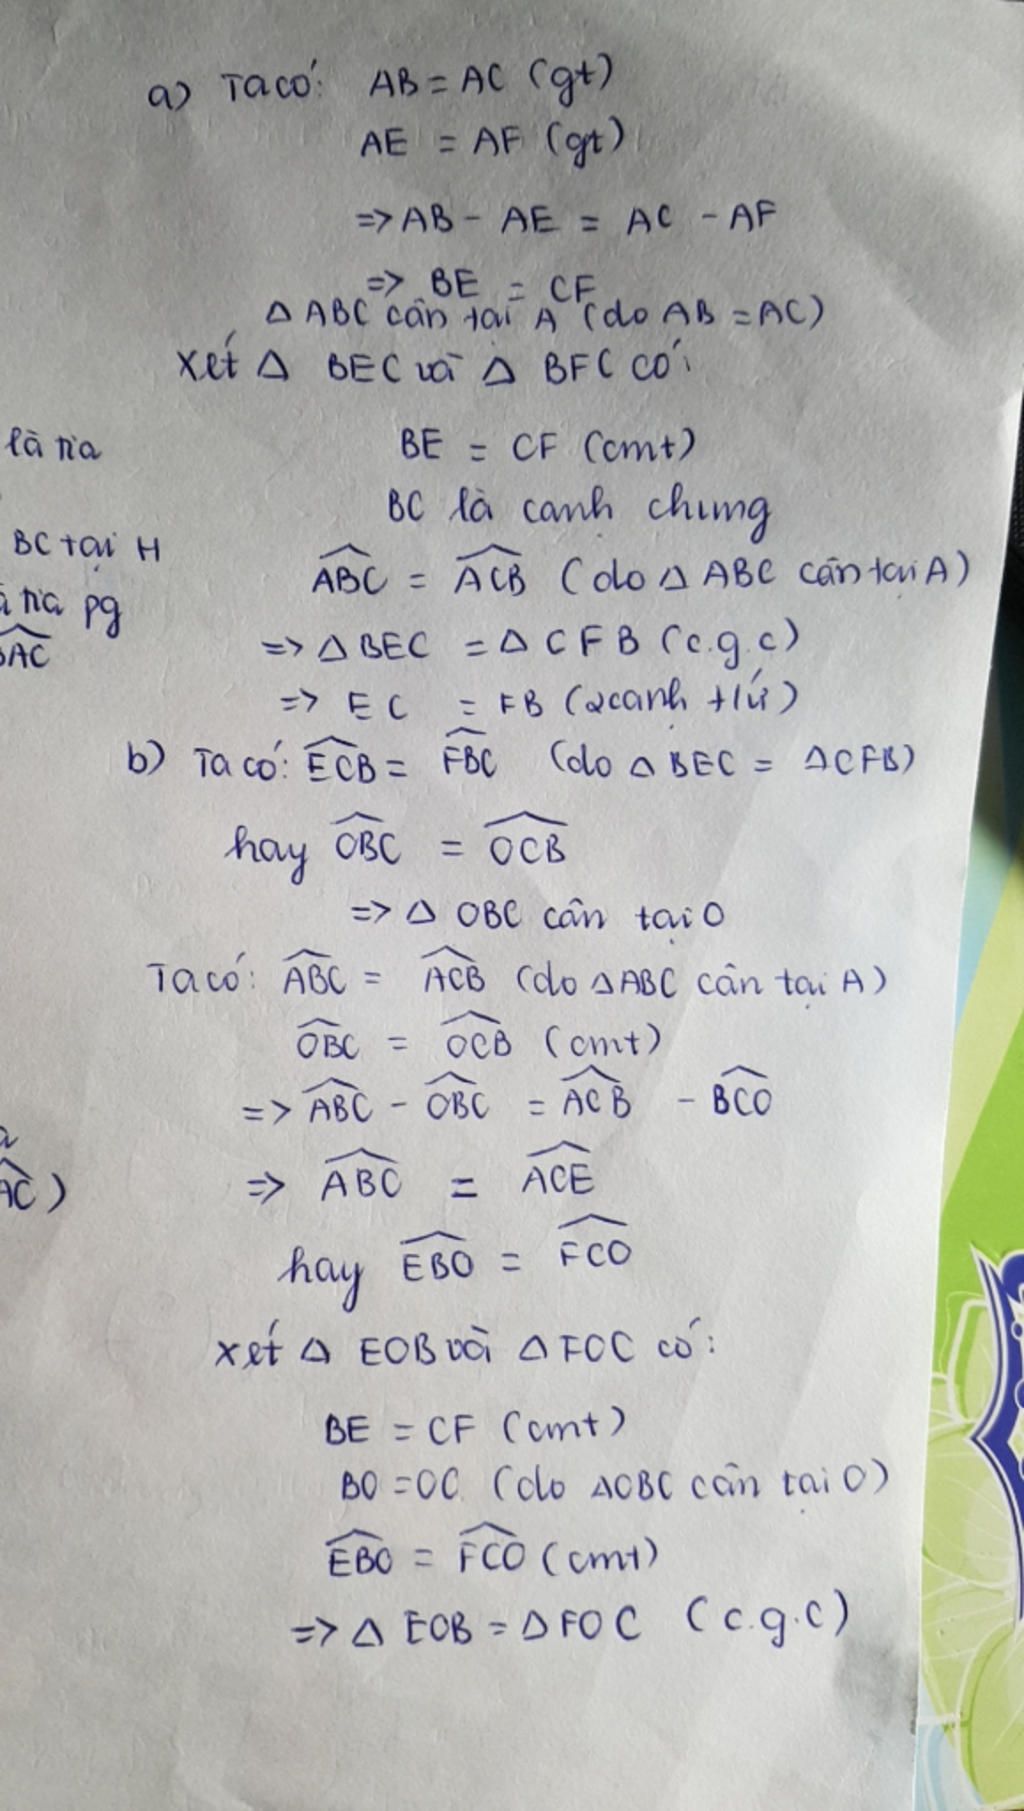 a) Ta có: AB = AC (gt)
AE = AF (gt)
=> AB - AE = AC - AF
=> BE = CF
Δ ABC cân tại A (do AB = AC)
xét Δ BEC và Δ BFC có:
BE = CF (cmt)
BC là cạnh chung
\widehat{ABC} = \widehat{ACB} (do Δ ABC cân tại A)
=> Δ BEC = Δ CFB (c.g.c)
=> EC = FB (2 cạnh t/ứ)
b) Ta có: \widehat{ECB} = \widehat{FBC} (do Δ BEC = ΔCFB)
hay \widehat{OBC} = \widehat{OCB}
=> Δ OBC cân tại O
Ta có: \widehat{ABC} = \widehat{ACB} (do ΔABC cân tại A)
\widehat{OBC} = \widehat{OCB} (cmt)
=> \widehat{ABC} - \widehat{OBC} = \widehat{ACB} - \widehat{BCO}
=> \widehat{ABO} = \widehat{ACE}
hay \widehat{EBO} = \widehat{FCO}
xét Δ EOB và Δ FOC có:
BE = CF (cmt)
BO = OC (do ΔOBC cân tại O)
\widehat{EBO} = \widehat{FCO} (cmt)
=> Δ EOB = Δ FOC (c.g.c)
là tia
BC tại H
tia pg
AC
AC)